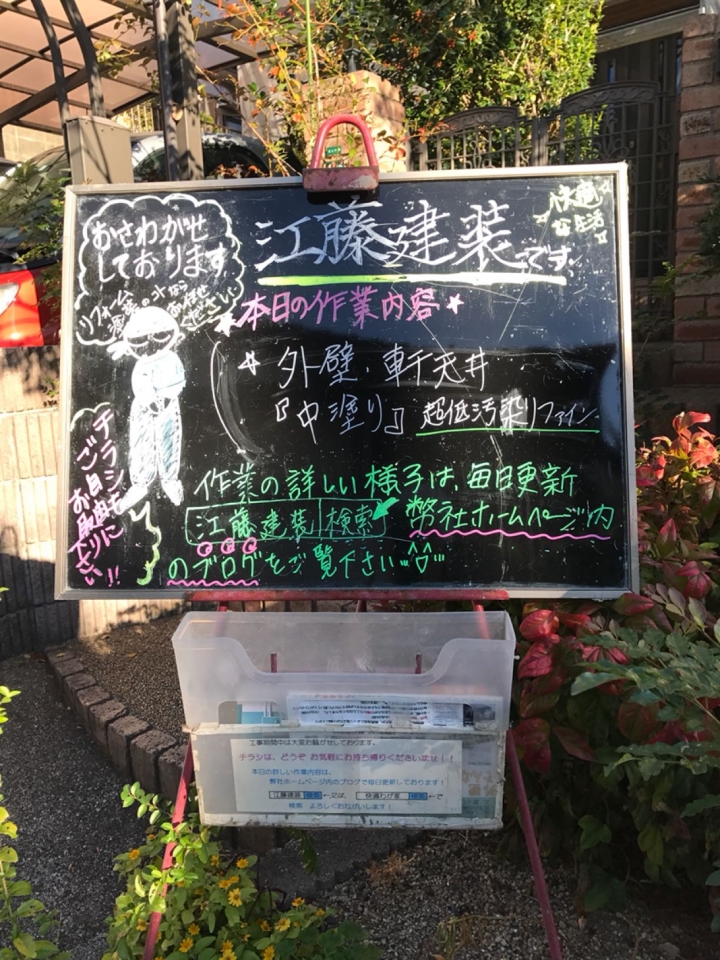 おさわがせ
しております
リフォーム
塗装の事なら
お任せ
ください
江藤建装です。
快適
な生活
★本日の作業内容★
☆外壁・軒天井
『中塗り』超低汚染リファイン
作業の詳しい様子は、毎日更新
江藤建装 検索 弊社ホームページ内
のブログをご覧下さい…
チラシも
ご自由に
お取下さい!!
工事期間中は大変お騒がせしております。
チラシは、どうぞ お気軽にお持ち帰りくださいませ!!
本日の詳しい作業内容は、
弊社ホームページ内のブログで毎日更新しております!
江藤建装 検索 ←又は、 快適わが家 検索 ←で
検索 よろしくおねがいします!